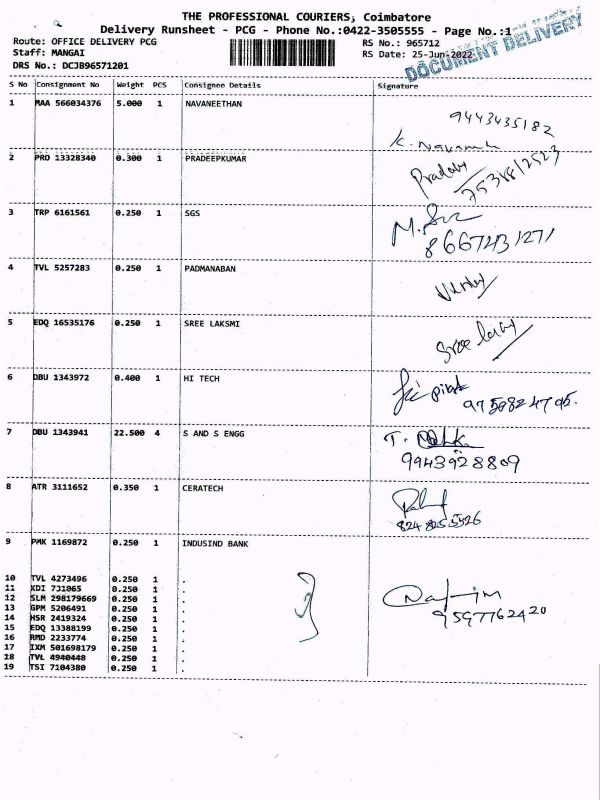 THE PROFESSIONAL COURIERS, Coimbatore
Delivery Runsheet - PCG - Phone No.:0422-3505555 - Page No.:1
Route: OFFICE DELIVERY PCG RS No.: 965712
Staff: MANGAI RS Date: 25-Jun-2022
DRS No.: DCJB96571201
DOCUMENT DELIVERY
S No Consignment No Weight PCS Consignee Details Signature
1 MAA 566034376 5.000 1 NAVANEETHAN
9443435182
2 PRO 13328340 0.300 1 PRADEEPKUMAR
3 TRP 6161561 0.250 1 SGS
8667431271
4 TVL 5257283 0.250 1 PADMANABAN
5 EDQ 16535176 0.250 1 SREE LAKSMI
6 DBU 1343972 0.400 1 HI TECH
7 DBU 1343941 22.500 4 S AND S ENGG
9943928809
8 ATR 3111652 0.350 1 CERATECH
9 PMK 1169872 0.250 1 INDUSIND BANK
10 TVL 4273496 0.250 1 .
11 KDI 731065 0.250 1 .
12 SLM 298179669 0.250 1 .
13 GPM 5206491 0.250 1 .
14 HSR 2419324 0.250 1 .
9597762420
15 EDQ 13388199 0.250 1 .
16 RMD 2233774 0.250 1 .
17 IXM 501698179 0.250 1 .
18 TVL 4940448 0.250 1 .
19 TSI 7104380 0.250 1 .